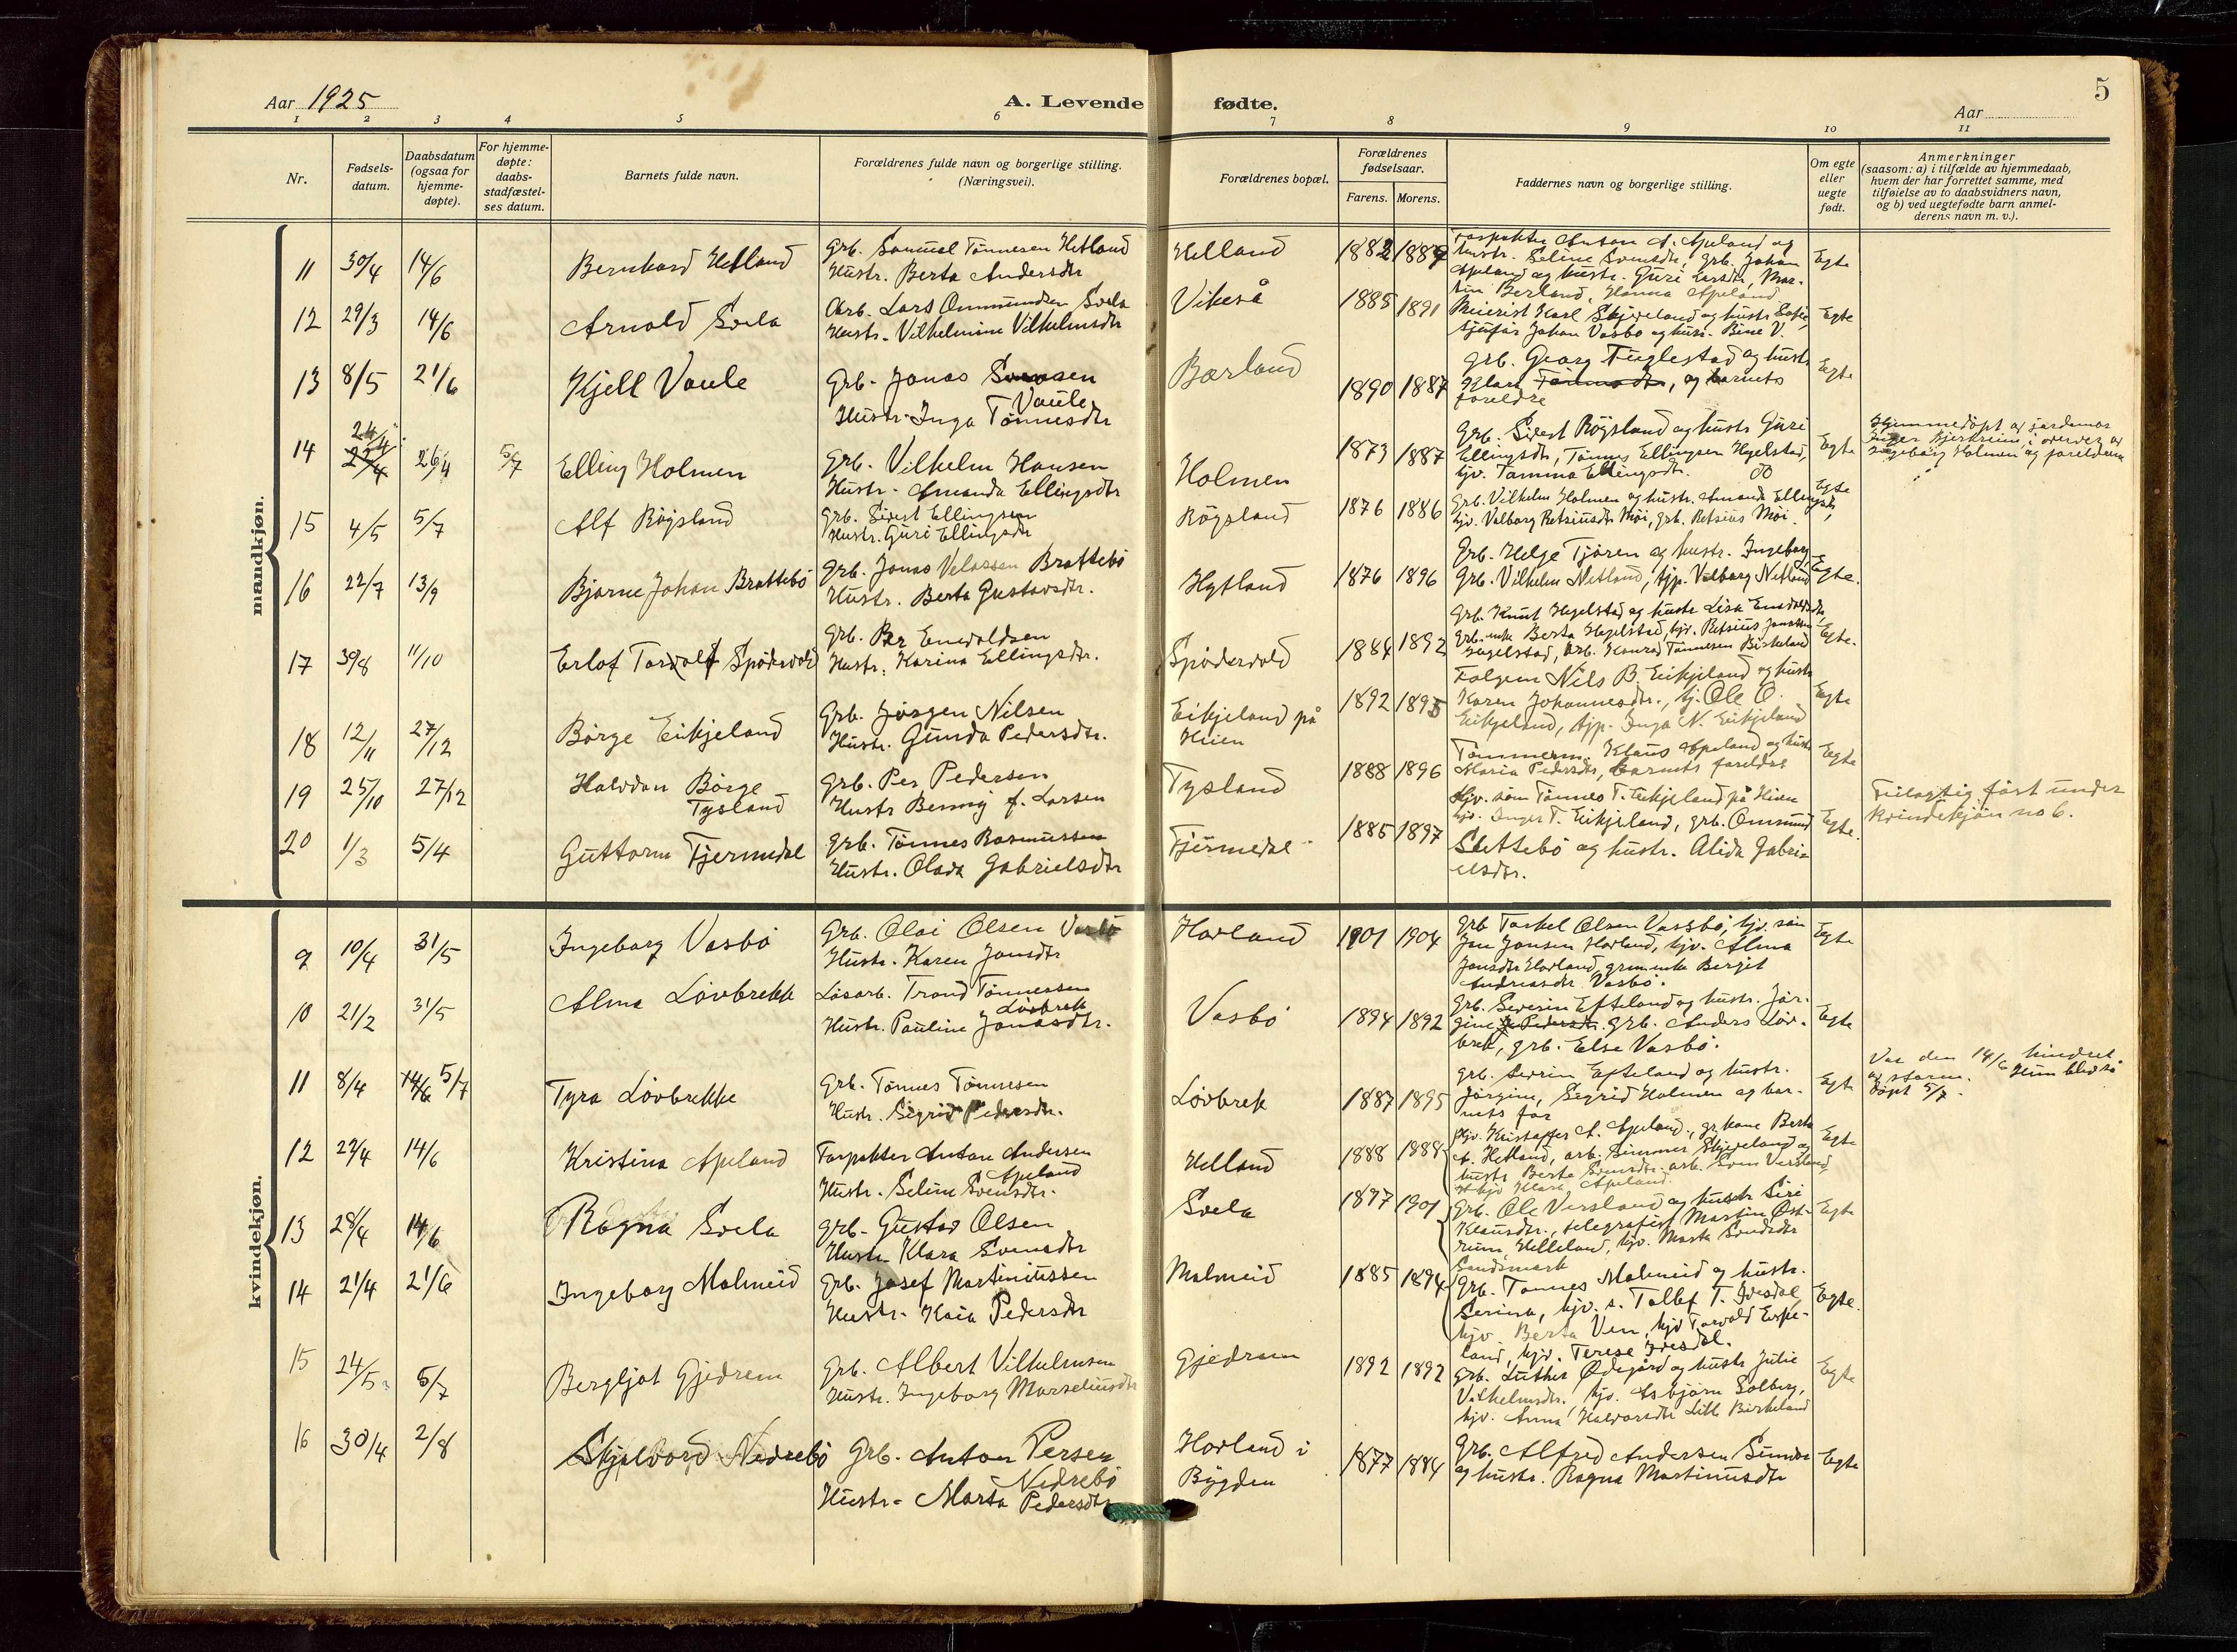 5
Aar 1925
A. Levende fødte.
Aar
1 2 3 4 5 6 7 8 9 10 11
Nr.
Fødsels-
datum.
Daabsdatum
(ogsaa for
hjemme-
døpte).
For hjemme-
døpte:
daabs-
stadfæstel-
ses datum.
Barnets fulde navn.
Forældrenes fulde navn og borgerlige stilling.
(Næringsvei).
Forældrenes bopæl.
Forældrenes
fødselsaar.
Farens. Morens.
Faddernes navn og borgerlige stilling.
Om egte
eller
uegte
født.
Anmerkninger
(saasom: a) i tilfælde av hjemmedaab,
hvem der har forrettet samme, med
tilføielse av to daabsvidners navn,
og b) ved uegtefødte barn anmel-
derens navn m. v.).
mandkjøn.
11 30/4 14/6 Bernhard Hetland
Grb. Samuel Tønnesen Hetland
Hustr. Berta Andersdtr
Helland 1882 1887
Forpakter Anton A. Apeland og
hustr. Seline Svensdtr, grb. Johan
Apeland og hustr. Guri Larsdtr, Mar-
tin Berland, Hanna Apeland
Egte
12 29/3 14/6 Arnold Svela
Arb. Lars Ommundsen Svela
Hustr. Vilhelmine Vilhelmsdtr
Vikeså 1885 1891
Meierist Karl Skjæveland og hustr Sofie,
sjåfør Johan Vasbø og hustr. Bine V.
Egte
13 8/5 21/6 Kjell Vaule
Grb. Jonas
Vaule
Hustr. Inga Tønnesdtr
Bærland 1890 1887
Grb. Georg Fuglestad og hustr
Klara , og barnets
foreldre
Egte
14 24/4 26/4 5/7 Elling Holmen
Grb. Vilhelm Hansen
Hustr. Amanda Ellingsdtr
Holmen 1873 1887
Grb. Sivert Røgsland og hustr Guri
Ellingsdtr, Tønnes Ellingsen Hegelstad,
hjv. Tomina Ellingsdtr. do
Egte
Hjemmedøpt av jordamor
Inger Bjerkreim i overvær av
Ingeborg Holmen og foreldrene
15 4/5 5/7 Alf Røgsland
Grb. Sivert Ellingsen
Hustr. Guri Ellingsdtr
Røgsland 1876 1886
Grb. Vilhelm Holmen og hustr. Amanda Ellingsdtr,
hjv. Valborg Retsiusdtr Møi, grb. Retsius Møi.
Egte
16 22/7 13/9 Bjarne Johan Brattebø
Grb. Jonas Velassen Brattebø
Hustr. Berta Gustavsdtr.
Hytland 1876 1896
Grb. Helge Tjøren og hustr. Ingeborg
Grb. Vilhelm Netland, tjp. Valborg Netland
Egte.
17 30/8 11/10 Erlof Torvolf Spødervold
Grb. Per Enevoldsen
Hustr. Karina Ellingsdtr.
Spødervold 1884 1892
Grb. Knut Hegelstad og hustr Lisa Enevoldsdtr
Grb.enke Berta Hegelstad, hjv. Retsius Jonassen
Hegelstad, Arb. Konrad Tønnesen Birkeland
Egte.
18 12/11 27/12 Børge Eikjeland
Grb. Jørgen Nilsen
Hustr. Gunda Pedersdtr.
Eikjeland på
Heien
1892 1895
Folgem Nils B. Eikjeland og hustr
Karen Johannesdtr., tj. Ole O.
Eikjeland, tjp. Inga N. Eikjeland
Egte
19 25/10 27/12 Halvdan Børge
Tysland
Grb. Per Pedersen
Hustr Benny f. Larsen
Tysland 1888 1896
Tømmerm. Klaus Apeland og hustr
Maria Pedersdtr, barnets foreldre
Egte
20 1/3 5/4 Guttorm Fjermedal
Grb. Tønnes Rasmussen
Hustr. Olava Gabrielsdtr
Fjermedal 1885 1897
Hjv. søn Tønnes T. Eikjeland på Heien
hjv. Inger T. Eikjeland, grb. Omund
Slettebø og hustr. Alida Gabri-
elsdtr.
Egte.
Feilagtig ført under
kvindekjøn no 6.
kvindekjøn.
9 10/4 31/5 Ingeborg Vasbø
Grb. Olai Olsen Vasbø
Hustr. Karen Jonsdtr
Hovland 1901 1904
Grb Torkel Olsen Vassbø, hjv. søn
Jon Jonsen Hovland, hjv. Alma
Jonsdtr Hovland, grm.enke Berjit
Andreasdtr Vasbø.
Egte
10 21/2 31/5 Alma Løvbrekk
Løsarb. Trond Tønnessen
Løvbrek
Hustr. Pauline Jonasdtr.
Vasbø 1894 1892
Grb. Severin Efteland og hustr. Jør-
gine . Grb. Anders Løv-
brek, grb. Else Vasbø.
Egte
11 8/4 14/6 5/7 Tyra Løvbrekke
Grb. Tønnes Tønnesen
Hustr. Sigrid Pedersdtr.
Løvbrek 1887 1895
Grb. Severin Efteland og hustr.
Jørgine, Sigrid Holmen og bar-
nets far
Egte
Var den 14/6 hindret
av storm. Hun blev så
døpt 5/7.
12 22/4 14/6 Kristina Apeland
Forpakter Anton Andersen
Apeland
Hustr. Seline Svensdtr.
Helland 1888 1888
Hjv. Kristoffer A. Apeland, gr.kone Berta
A. Hetland, arb. Simmer Skjæveland og
hustr Berta Svensdtr. arb. Sven Versland
og hjv Klara Apeland.
Egte
13 28/4 14/6 Ragna Svela
Grb. Gustav Olsen
Hustr. Klara Svensdtr
Svela 1897 1901
Grb. Ole Versland og hustr Siri
Klausdtr., telegrafist Martin Øst-
rum, Helleland, hjv. Marta
Sandsmark
Egte
14 21/4 21/6 Ingeborg Malmeid
Grb. Josef Martiniussen
Hustr. Kaia Pedersdtr
Malmeid 1885 1894
Grb. Tønnes Malmeid og hustr.
Serina, hjv. s. Tollef T. Ivesdal,
hjv. Berta Ven, hjv Torvald Espe-
land, hjv. Terese Ivesdal.
Egte.
15 24/5 5/7 Bergljot Gjedrem
Grb. Albert Vilhelmsen
Hustr. Ingeborg Marseliusdtr
Gjedrem 1892 1892
Grb. Luther Ødegård og hustr Julie
Vilhelmsdtr., hjv. Asbjørn Solberg,
hjv. Anna Halvorsdtr Litle Birkeland
Egte
16 30/4 2/8 Skjalvor Nedrebø
Grb. Anton Persen
Nedrebø
Hustr. Marta Pedersdtr
Hovland i
Bygden
1877 1884
Grb. Alfred Andersen
og hustr. Ragna Martinusdtr
Egte